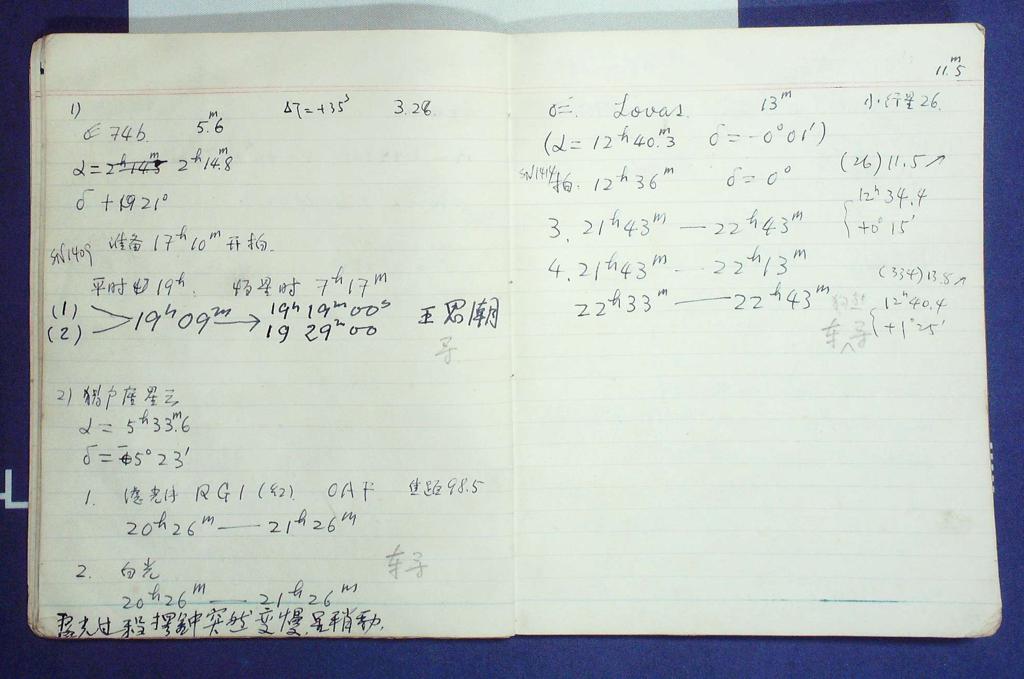 1) ΔT=+35ˢ 3.28.
€ 746. 5.ᵐ6
α=2ʰ14ᵐ.8 2ʰ14.ᵐ8
δ +1921°
SN1409 准备17ʰ10ᵐ开拍.
平时 19ʰ. 恒星时 7ʰ17ᵐ
(1)
(2) >19ʰ09ᵐ→ 19ʰ19ᵐ00ˢ
19 29ᵐ00
王思潮
2) 猎户座星云
α= 5ʰ33.ᵐ6
δ=-5°23′
1. 滤光片 RG1(红) OAF 焦距98.5
20ʰ26ᵐ——21ʰ26ᵐ
2. 白光
20ʰ26ᵐ——21ʰ26ᵐ
露光过程摆钟突然变慢,星稍动.
11.ᵐ5
Lovas. 13ᵐ 小行星26.
(α=12ʰ40.ᵐ3 δ=-0°01′)
SN1414 拍: 12ʰ36ᵐ δ=0°
(26) 11.5↗
12ʰ34.4
+0°15′
3. 21ʰ43ᵐ—22ʰ43ᵐ
4. 21ʰ43ᵐ—22ʰ13ᵐ
22ʰ33ᵐ——22ʰ43ᵐ
(334) 13.8↗
12ʰ40.4
+1°25′